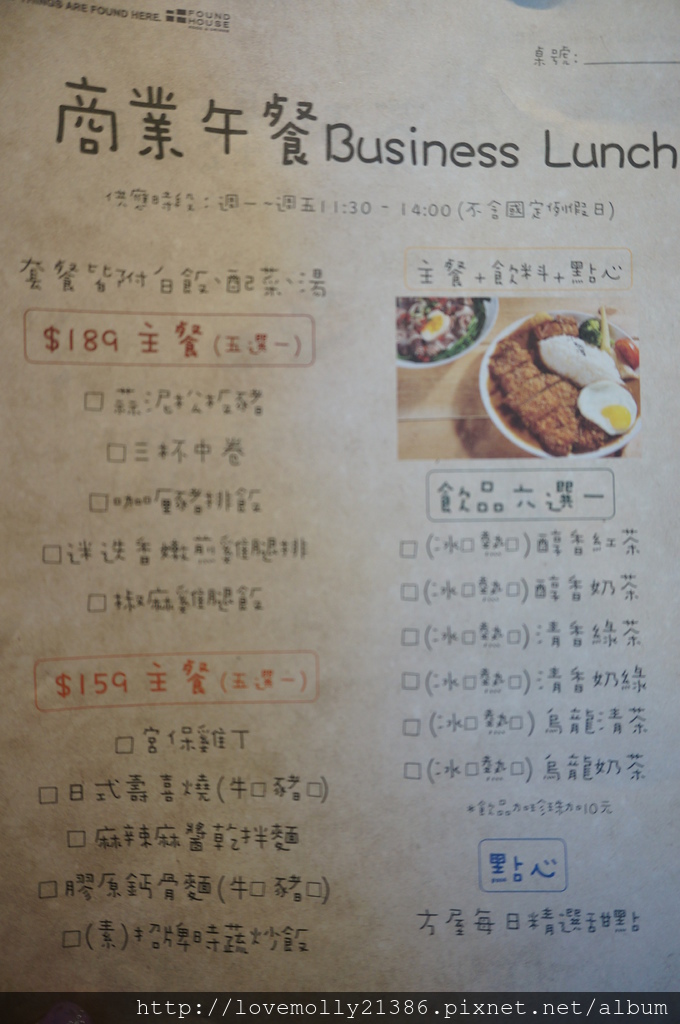 THINGS ARE FOUND HERE. FOUND HOUSE
桌號:
商業午餐Business Lunch
供應時段:週一~週五11:30 - 14:00(不含國定例假日)
套餐皆附白飯、配菜、湯
$189 主餐(五選一)
□ 蒜泥松板豬
□ 三杯中卷
□ 咖哩豬排飯
□ 迷迭香嫩煎雞腿排
□ 椒麻雞腿飯
$159 主餐(五選一)
□ 宮保雞丁
□ 日式壽喜燒(牛□ 豬□)
□ 麻辣麻醬乾拌麵
□ 膠原鈣骨麵(牛□ 豬□)
□ (素)招牌時蔬炒飯
主餐+飲料+點心
飲品六選一
□ (冰□ 熱□) 醇香紅茶
□ (冰□ 熱□) 醇香奶茶
□ (冰□ 熱□) 清香綠茶
□ (冰□ 熱□) 清香奶綠
□ (冰□ 熱□) 烏龍清茶
□ (冰□ 熱□) 烏龍奶茶
*飲品加珍珠加10元
點心
方屋每日精選甜點
http://lovemolly21386.pixnet.net/album